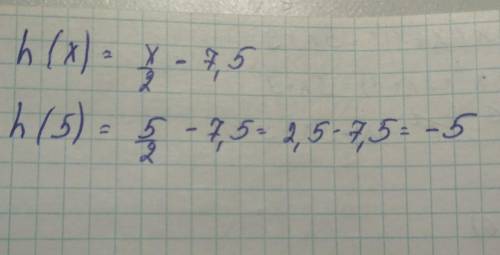 h(x) = x/2 - 7,5
h(5) = 5/2 - 7,5 = 2,5 - 7,5 = -5